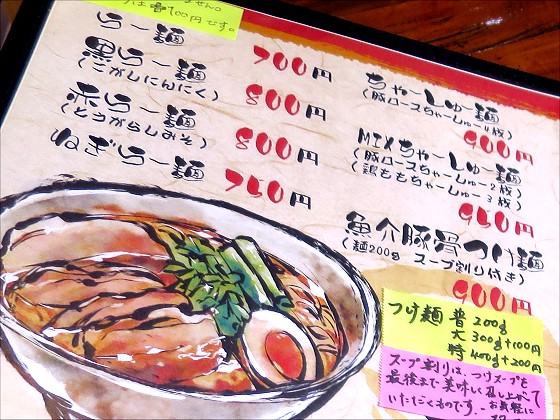 は普700円です。
らー麺
700円
黒らー麺
(こがしにんにく)
800円
赤らー麺
(とうがらしみそ)
800円
ねぎらー麺
750円
ちゃーしゅー麺
(豚ロースちゃーしゅー4枚)
900円
MIXちゃーしゅー麺
(豚ロースちゃーしゅー2枚)
(鶏ももちゃーしゅー3枚)
950円
魚介豚骨つけ麺
(麺200g スープ割り付き)
900円
つけ麺 普 200g
大 300g+100円
特 400g+200円
スープ割りは、つけスープを
最後まで美味しく召し上がって
いただくものです。お気軽に